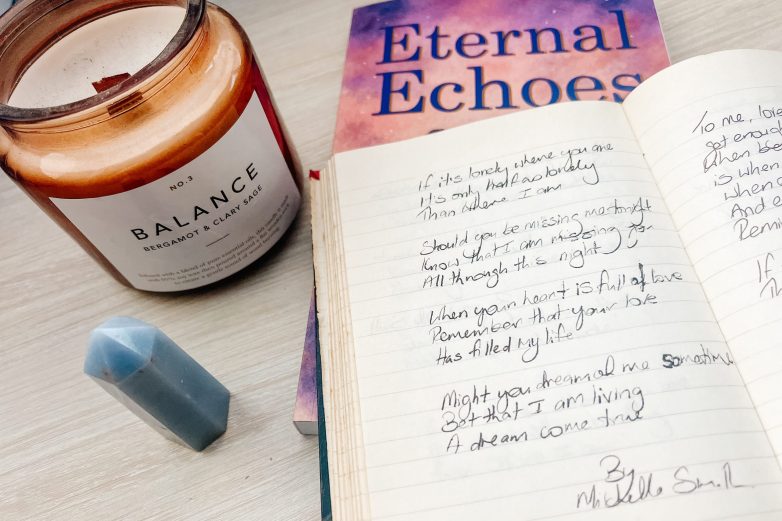 NO.3
BALANCE
BERGAMOT & CLARY SAGE
Eternal
Echoes
If it's lonely where you are
It's only half as lonely
Than where I am
Should you be missing me tonight
Know that I am missing you
All through this night
When your heart is full of love
Remember that your love
Has filled my life
Might you dream of me sometime
Bet that I am living
A dream come true
By
Michelle Smith
To me, love
get enough
When
is when
when
And
If